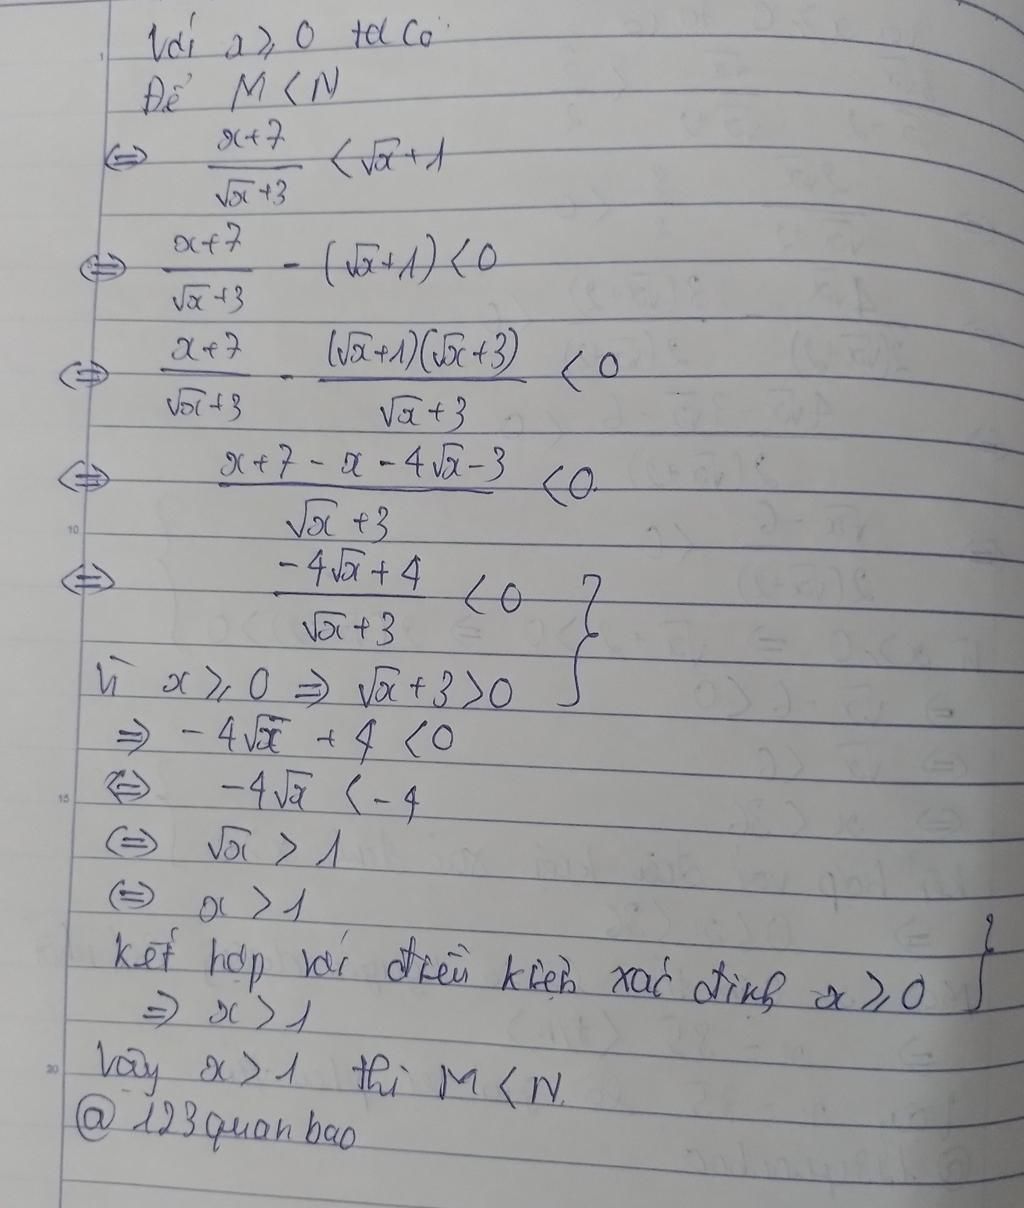 Với x ≥ 0 ta có
Để M < N
⇔ (x+7)/(√x+3) < √x+1
⇔ (x+7)/(√x+3) - (√x+1) < 0
⇔ (x+7)/(√x+3) - ((√x+1)(√x+3))/(√x+3) < 0
⇔ (x+7-x-4√x-3)/(√x+3) < 0
10
⇔ (-4√x+4)/(√x+3) < 0 }
Vì x ≥ 0 ⇒ √x+3 > 0
⇒ -4√x + 4 < 0
⇔ -4√x < -4
15
⇔ √x > 1
⇔ x > 1 }
kết hợp với điều kiện xác định x ≥ 0
⇒ x > 1
20
Vậy x > 1 thì M < N.
@ 123quanbao